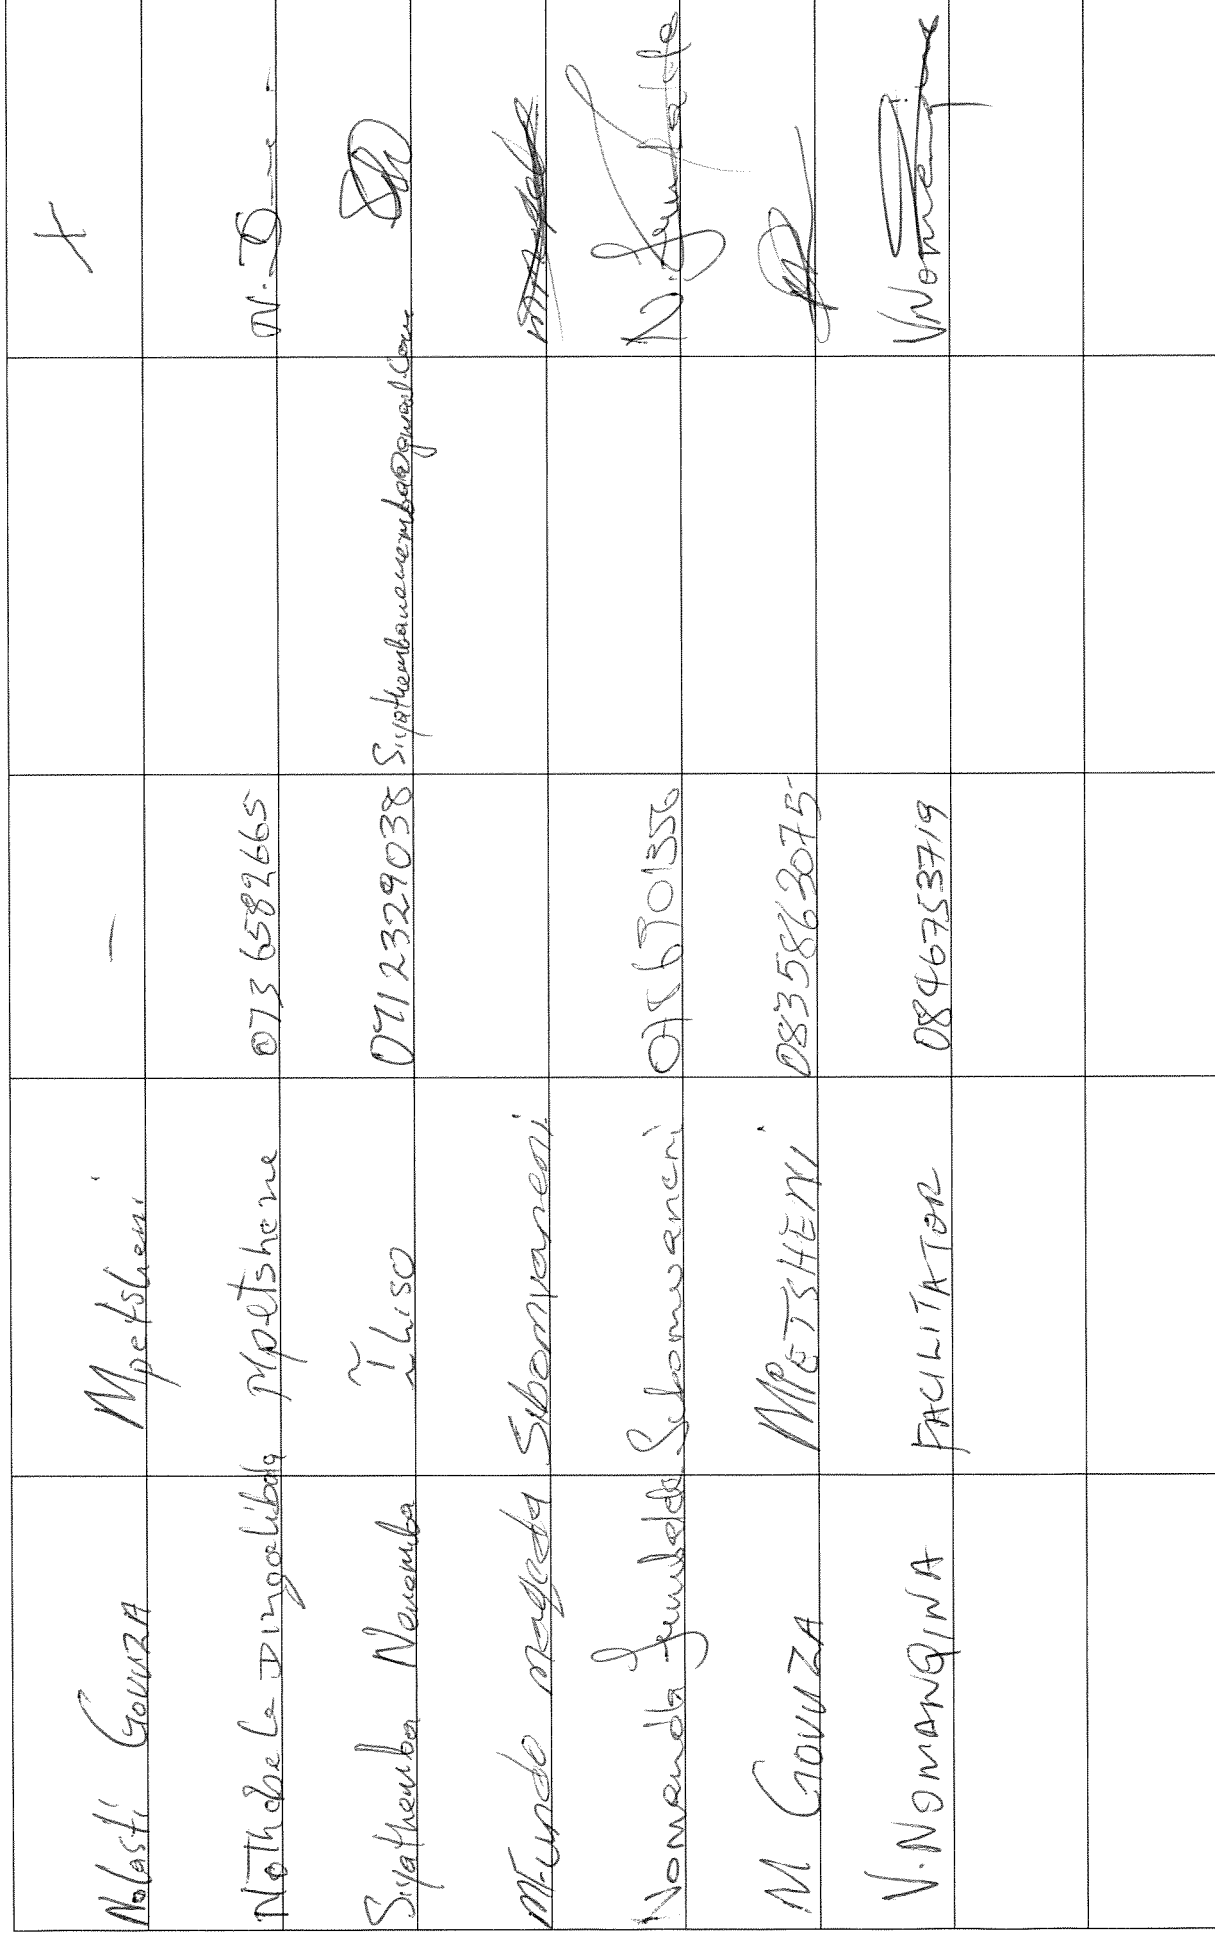 Nolasti Govuza Mpetsheni - X
Nothobela Dingalibala Mpetshene 073 6582665 N.D
Siyathemba Nomemba Thiso 0712329038 Siyathembanomemba@gmail.com
Mfundo Magada Sibonyaneni
Nomanda Sibomvaneni 0786901356
M GOVUZA MPETSHENI 0835863075
V. NOMANQINA FACILITATOR 0846753719 VNomanqina